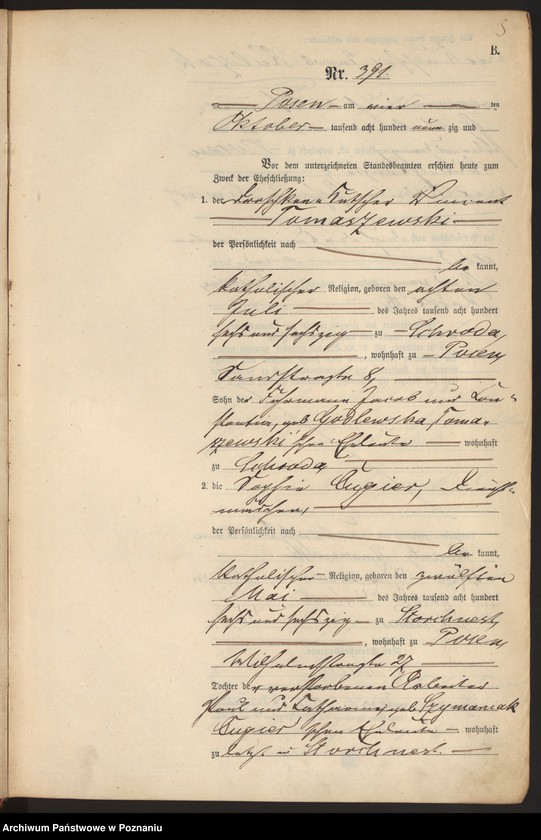 5
B.
Nr. 391.
Posen am vier ten
Oktober tausend acht hundert neun zig und
Vor dem unterzeichneten Standesbeamten erschien heute zum
Zweck der Eheschließung:
1. der Droschken-Kutscher Vincent
Tomaszewski
der Persönlichkeit nach
be kannt,
katholischer Religion, geboren den achten
Juli des Jahres tausend acht hundert
sechs und sechszig zu Schroda,
, wohnhaft zu Posen,
Sandstraße 8,
Sohn der Fuhrmann Jacob und Con-
stantia, geb. Godlewska, Toma-
szewski'schen Eheleute wohnhaft
zu Schroda
2. die Sophie Cugier, Dienst-
mädchen,
der Persönlichkeit nach
be kannt,
katholischer Religion, geboren den zwölften
Mai des Jahres tausend acht hundert
sechs und sechszig zu Storchnest,
, wohnhaft zu Posen,
Wilhelmstraße 27
Tochter der verstorbenen Arbeiter
Paul und Catharina, geb. Szymaniak
Cugier'schen Eheleute wohnhaft
zu letzt in Storchnest.
Archiwum Państwowe w Poznaniu